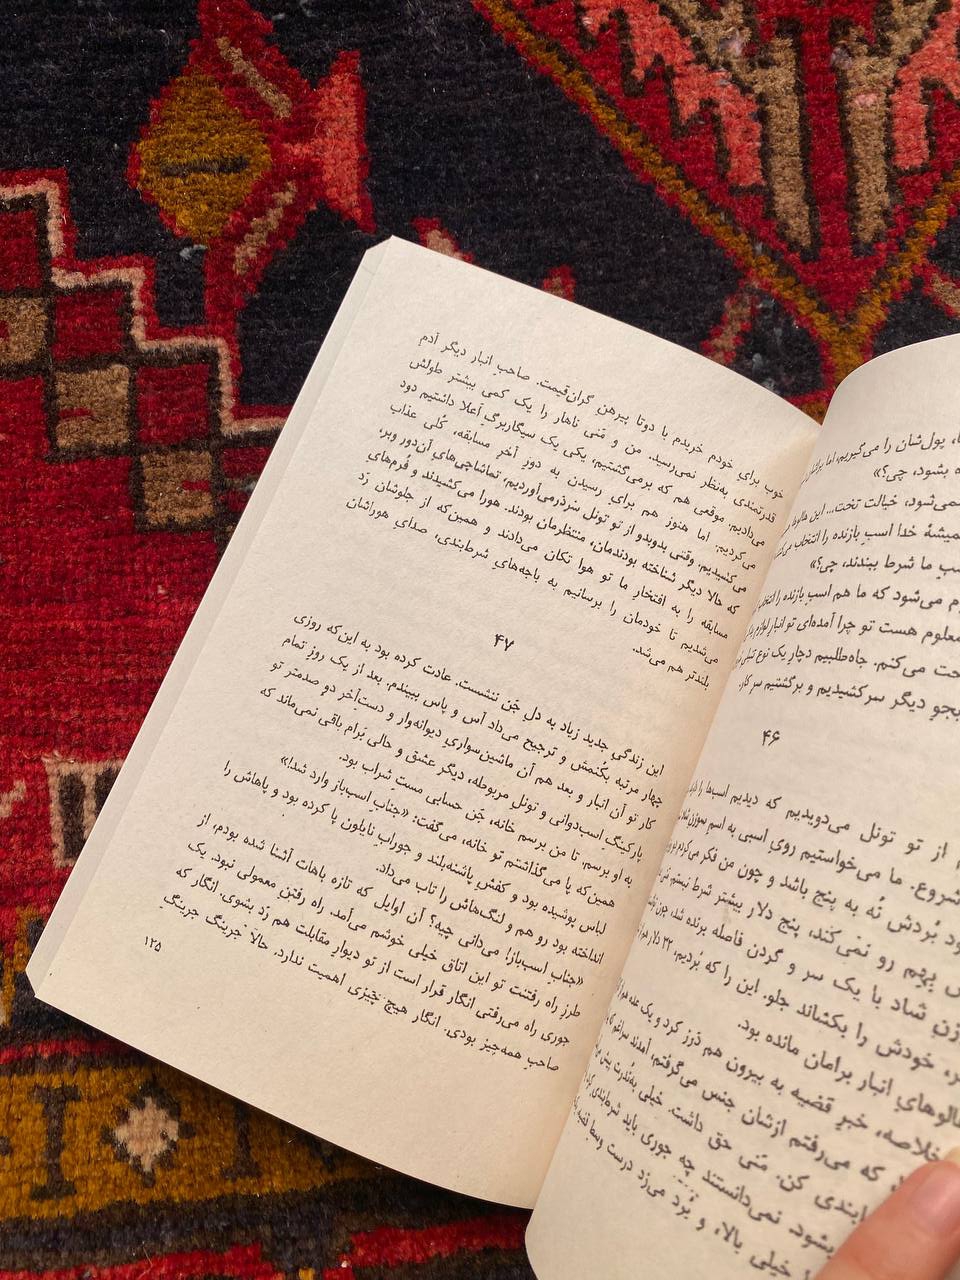 پول‌شان را می‌گیریم، اما
بشود، چی؟»
نمی‌شود، خیالت تخت... این هالوها
خدا اسبِ بازنده را انتخاب
ما شرط ببندند، چی؟»
می‌شود که ما هم اسبِ بازنده را
معلوم هست تو چرا آمده‌ای تو انبارِ لوازم
می‌کنم. جاه‌طلبیم دچارِ یک نوع تنبلی
دیگر سرکشیدیم و برگشتیم سرِ کار.
۴۶
از تو تونل می‌دویدیم که دیدیم اسب‌ها را
شروع. ما می‌خواستیم رویِ اسبی به اسمِ
بُردش نُه به پنج باشد و چون من فکر می‌کردم
رو نمی‌کند، پنج دلار بیشتر شرط نبستم.
شاد با یک سر و گردن فاصله برنده شد، چون
خودش را بکشاند جلو. این را که بُردیم، ۳۲ دلار هم
انبار برامان مانده بود.
خلاصه، خبرِ قضیه به بیرون هم دَرز کرد و یک عده هم
که می‌رفتم ازشان جنس می‌گرفتم، آمدند سراغم
کن. مَنی حق داشت. خیلی به‌نُدرت پیش
نمی‌دانستند چه جوری باید شرط‌بندی
خیلی بالا، و بُرد می‌زد درست وسطِ
خوب برایِ خودم خریدم با دوتا پیرهنِ گران‌قیمت. صاحبِ انبار دیگر آدمِ
قدرتمندی به‌نظر نمی‌رسید. من و مَنی ناهار را یک کمی بیشتر طولش
می‌دادیم. موقعی هم که برمی‌گشتیم، یکی یک سیگاربرگِ اَعلا داشتیم دود
می‌کردیم. اما هنوز هم برایِ رسیدن به دورِ آخرِ مسابقه، کُلی عذاب
می‌کشیدیم. وقتی بدوبدو از تو تونل سردَرمی‌آوردیم، تماشاچی‌های آن‌دور وبر،
که حالا دیگر شناخته بودندمان، منتظرمان بودند. هورا می‌کشیدند و فُرم‌هایِ
مسابقه را به افتخارِ ما تو هوا تکان می‌دادند و همین‌که از جلوشان رَد
می‌شدیم تا خودمان را برسانیم به باجه‌هایِ شرط‌بندی، صدایِ هوراشان
بلندتر هم می‌شد.
۴۷
این زندگیِ جدید زیاد به دلِ جَن ننشست. عادت کرده بود به این‌که روزی
چهار مرتبه بکُنمش و ترجیح می‌داد آس و پاس ببیندم. بعد از یک روزِ تمام
کار تو آن انبار و بعد هم آن ماشین‌سواریِ دیوانه‌وار و دستِ‌آخر دو صدمتر تو
پارکینگ اسب‌دوانی و تونلِ مربوطه، دیگر عشق و حالی بَرام باقی نمی‌ماند که
به او برسم. تا من برسم خانه، جَن حسابی مستِ شراب بود.
همین‌که پا می‌گذاشتم تو خانه، می‌گفت: «جنابِ اسب‌باز وارد شد!»
لباس پوشیده بود و کفشِ پاشنه‌بلند و جورابِ نایلون پا کرده بود و پاهاش را
انداخته بود رو هم و لنگ‌هاش را تاب می‌داد.
«جنابِ اسب‌باز! می‌دانی چیه؟ آن اوایل که تازه باهات آشنا شده بودم، از
طرزِ راه رفتنت تو این اتاق خیلی خوشم می‌آمد. راه رفتنِ معمولی نبود. یک
جوری راه می‌رفتی انگار قرار است از تو دیوارِ مقابلت هم رَد بشوی. انگار که
صاحبِ همه‌چیز بودی. انگار هیچ چیزی اهمیت ندارد. حالاَ جَرینگ جَرینگِ
۱۲۵